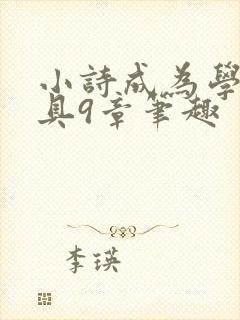 小詩成為學
具9章筆趣
李瑛